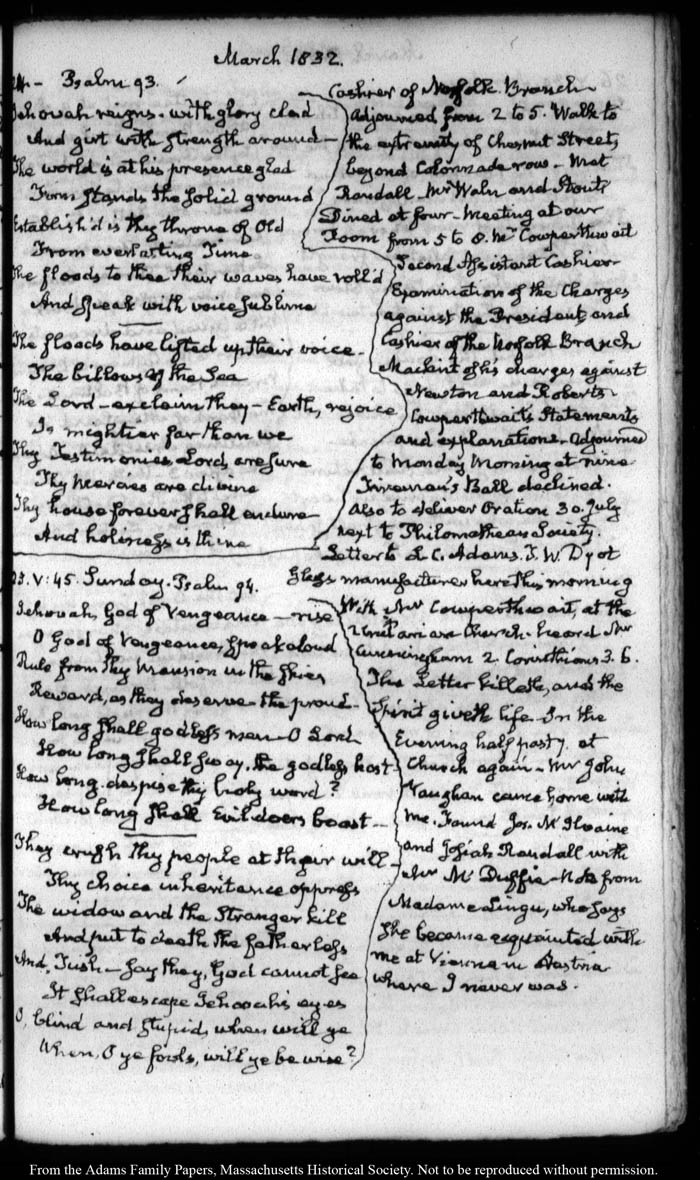 March 1832.
24 - Psalm 93.
Jehovah reigns - with glory clad
And girt with strength around -
The world is at his presence glad
Firm stands the solid ground
Establish'd is thy throne of Old
From everlasting Time
The floods to thee their waves have roll'd
And speak with voice sublime
The floods have lifted up their voice -
The billows of the Sea
The Lord - exclaim they - Earth, rejoice
Is mightier far than we
Thy Testimonies Lord are sure
Thy Mercies are divine
Thy house forever shall endure -
And holiness is thine
Cashier of Norfolk Branch
Adjourned from 2 to 5. Walk to
the extremity of Chesnut Street,
beyond Colonnade row - Met
Randall, Mr Waln and Stout
Dined at four - Meeting at our
Room from 5 to 8. Mr Cowperthwait
Second Assistant Cashier -
Examination of the Charges
against the President, and
Cashier of the Norfolk Branch
Mackint of his charges against
Newton and Roberts -
Cowperthwait's Statements
and explanations - Adjourned
to Monday Morning at nine
Fireman's Ball declined.
Also to deliver Oration 30. July
next to Philomathean Society.
Letter to L. C. Adams. T. W. Dyot
Glass manufacturer here this morning
25. V: 45. Sunday. Psalm 94.
Jehovah, God of Vengeance - rise
O God of Vengeance, speak aloud
Rule from thy Mansion in the skies
Reward, as they deserve - the proud -
How long shall godless men - O Lord
How long shall sway, the godless host -
How long - despise thy holy word?
How long shall Evil doers boast -
They crush thy people at their will -
Thy choice inheritance oppress
The widow and the Stranger kill
And put to death the fatherless
And, Tush - say they, God cannot see
It shall escape Jehovah's eyes
O, blind and stupid, when will ye
When, O ye fools, will ye be wise?
With Mr Cowperthwait, at the
Unitarian Church - heard Mr
Cunningham 2. Corinthians 3. 6.
The Letter killeth, and the
Spirit giveth life - In the
Evening half past 7. at
Church again - Mr John
Vaughan came home with
me. Found Jos. McIlvaine
and Josiah Randall with
Mr McDuffie - Note from
Madame Lingu, who says
She became acquainted with
me at Vienna in Austria
where I never was.
From the Adams Family Papers, Massachusetts Historical Society. Not to be reproduced without permission.